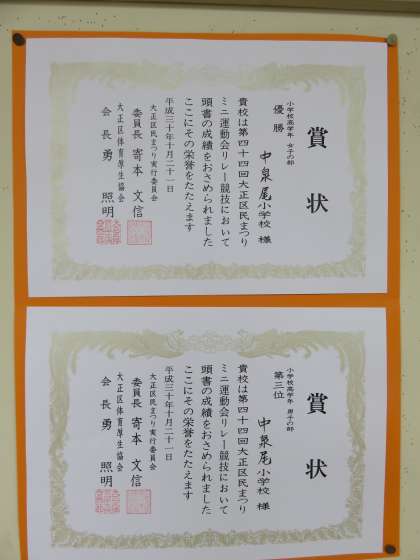 賞状
小学校高学年 女子の部
優勝
中泉尾小学校 様
貴校は第四十四回大正区民まつり
ミニ運動会リレー競技において
頭書の成績をおさめられました
ここにその栄誉をたたえます
平成三十年十月二十一日
大正区民まつり実行委員会
委員長 寄本 文信
大正区体育厚生協会
会長 勇 照明
賞状
小学校高学年 男子の部
第三位
中泉尾小学校 様
貴校は第四十四回大正区民まつり
ミニ運動会リレー競技において
頭書の成績をおさめられました
ここにその栄誉をたたえます
平成三十年十月二十一日
大正区民まつり実行委員会
委員長 寄本 文信
大正区体育厚生協会
会長 勇 照明